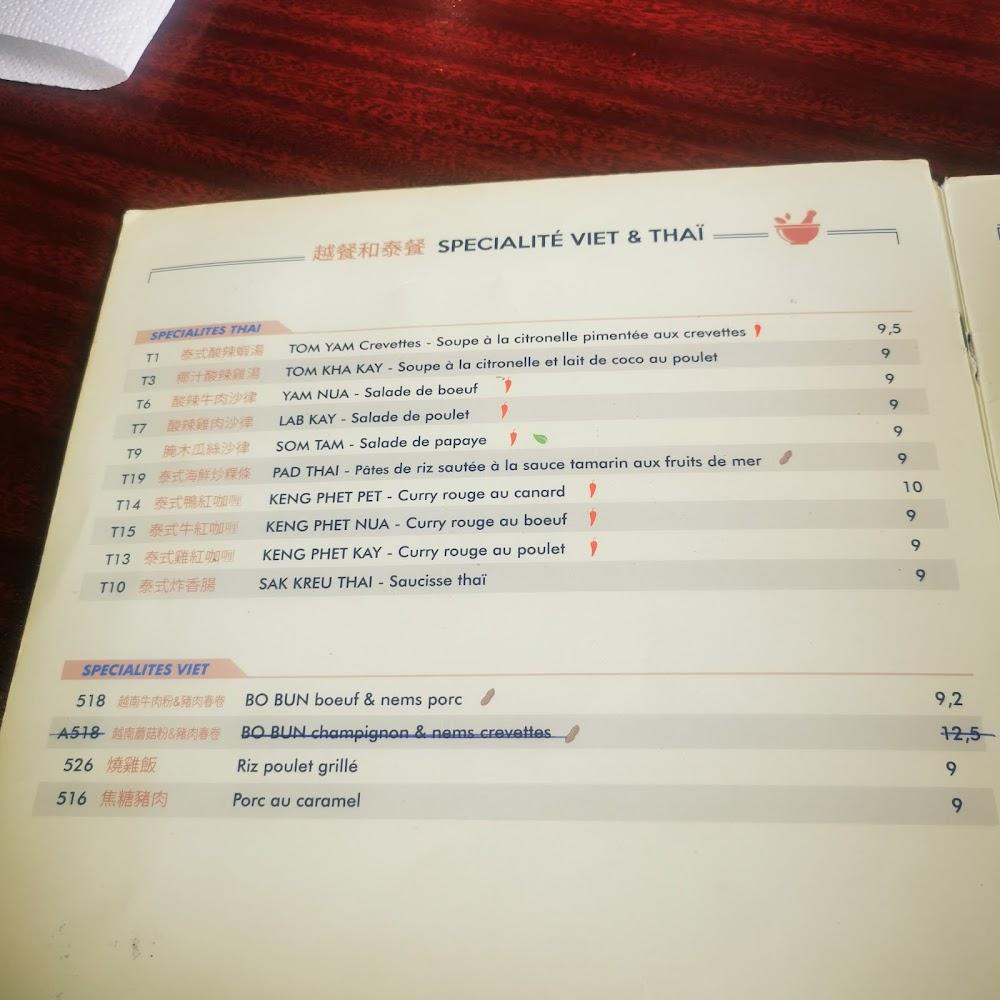 越餐和泰餐 SPECIALITÉ VIET & THAÏ
SPECIALITES THAI
T1 泰式酸辣蝦湯 TOM YAM Crevettes - Soupe à la citronelle pimentée aux crevettes 9,5
T3 椰汁酸辣雞湯 TOM KHA KAY - Soupe à la citronelle et lait de coco au poulet 9
T6 酸辣牛肉沙律 YAM NUA - Salade de boeuf 9
T7 酸辣雞肉沙律 LAB KAY - Salade de poulet 9
T9 腌木瓜絲沙律 SOM TAM - Salade de papaye 9
T19 泰式海鮮炒粿條 PAD THAI - Pâtes de riz sautée à la sauce tamarin aux fruits de mer 9
T14 泰式鴨紅咖喱 KENG PHET PET - Curry rouge au canard 10
T15 泰式牛紅咖喱 KENG PHET NUA - Curry rouge au boeuf 9
T13 泰式雞紅咖喱 KENG PHET KAY - Curry rouge au poulet 9
T10 泰式炸香腸 SAK KREU THAI - Saucisse thaï 9
SPECIALITES VIET
518 越南牛肉粉&豬肉春卷 BO BUN boeuf & nems porc 9,2
A518 越南蘑菇粉&豬肉春卷 BO BUN champignon & nems crevettes 12,5
526 燒雞飯 Riz poulet grillé 9
516 焦糖豬肉 Porc au caramel 9